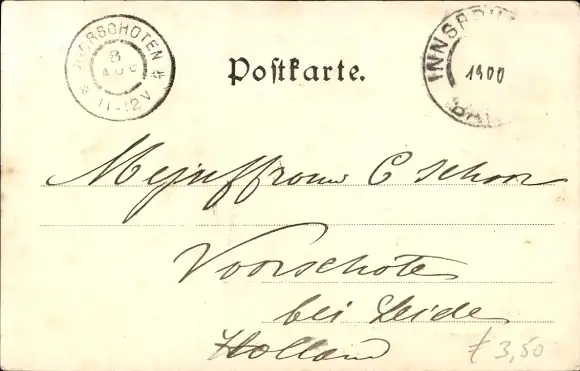 VOORSCHOTEN
8
AUG
11-12V
Postkarte.
INNSBRU
1900
BA
Mejuffrouw C Schoor
Voorschote
bei Leide
Holland
ƒ 3,50